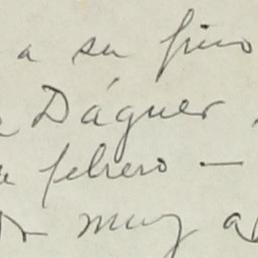 a su fino
Dáguer
febrero —
muy a